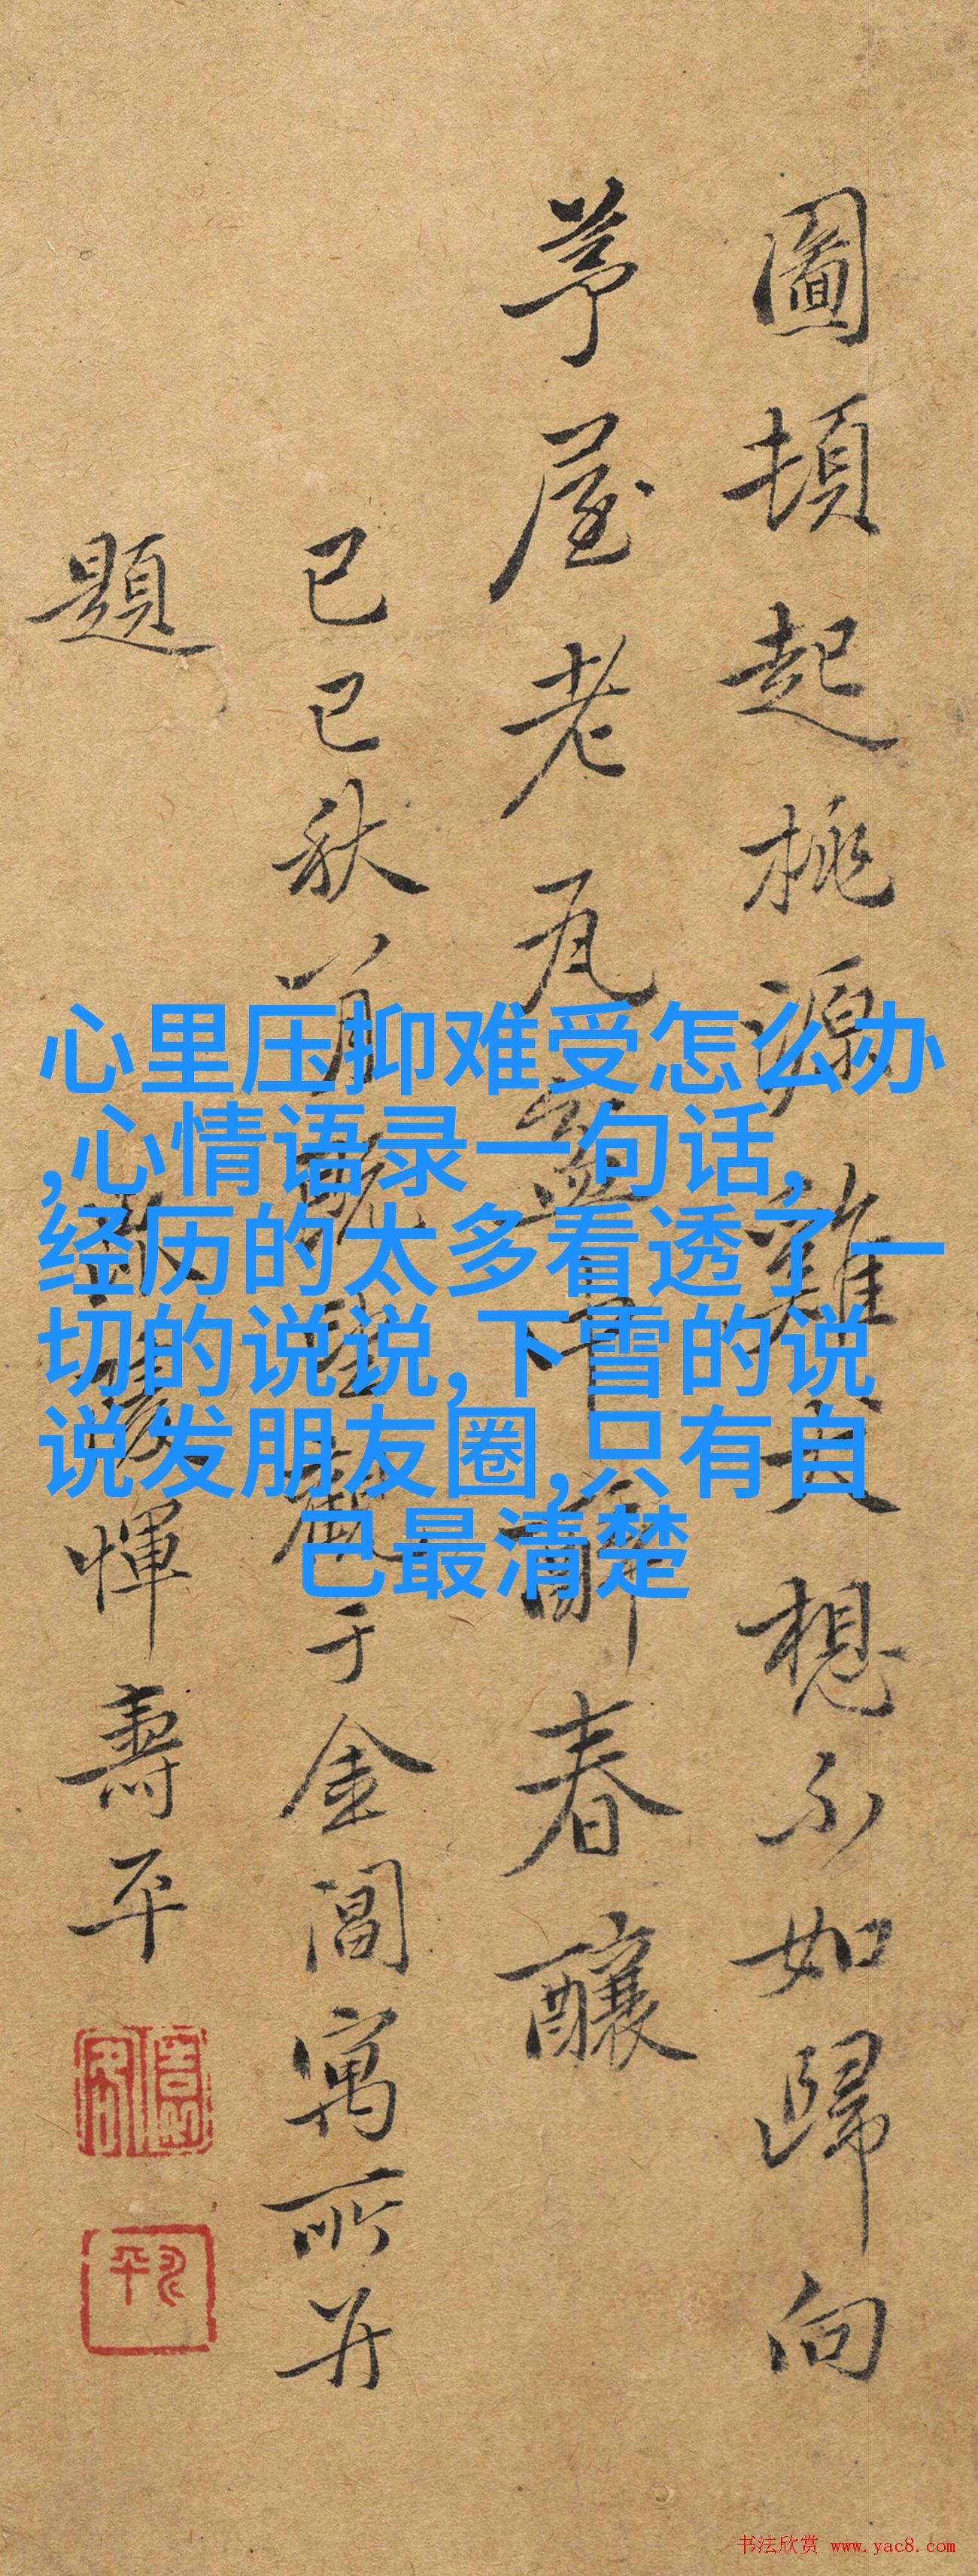 心里压抑难受怎么办
,心情语录一句话,
经历的太多看透了一
切的说说,下雪的说
说发朋友圈,只有自
己最清楚
圖頓起桃源雞犬想不如歸向
茅屋老瓦盆中醉春釀
己巳秋八月觀于金閶寓所并
題
惲壽平
书法欣赏 www.yac8.com